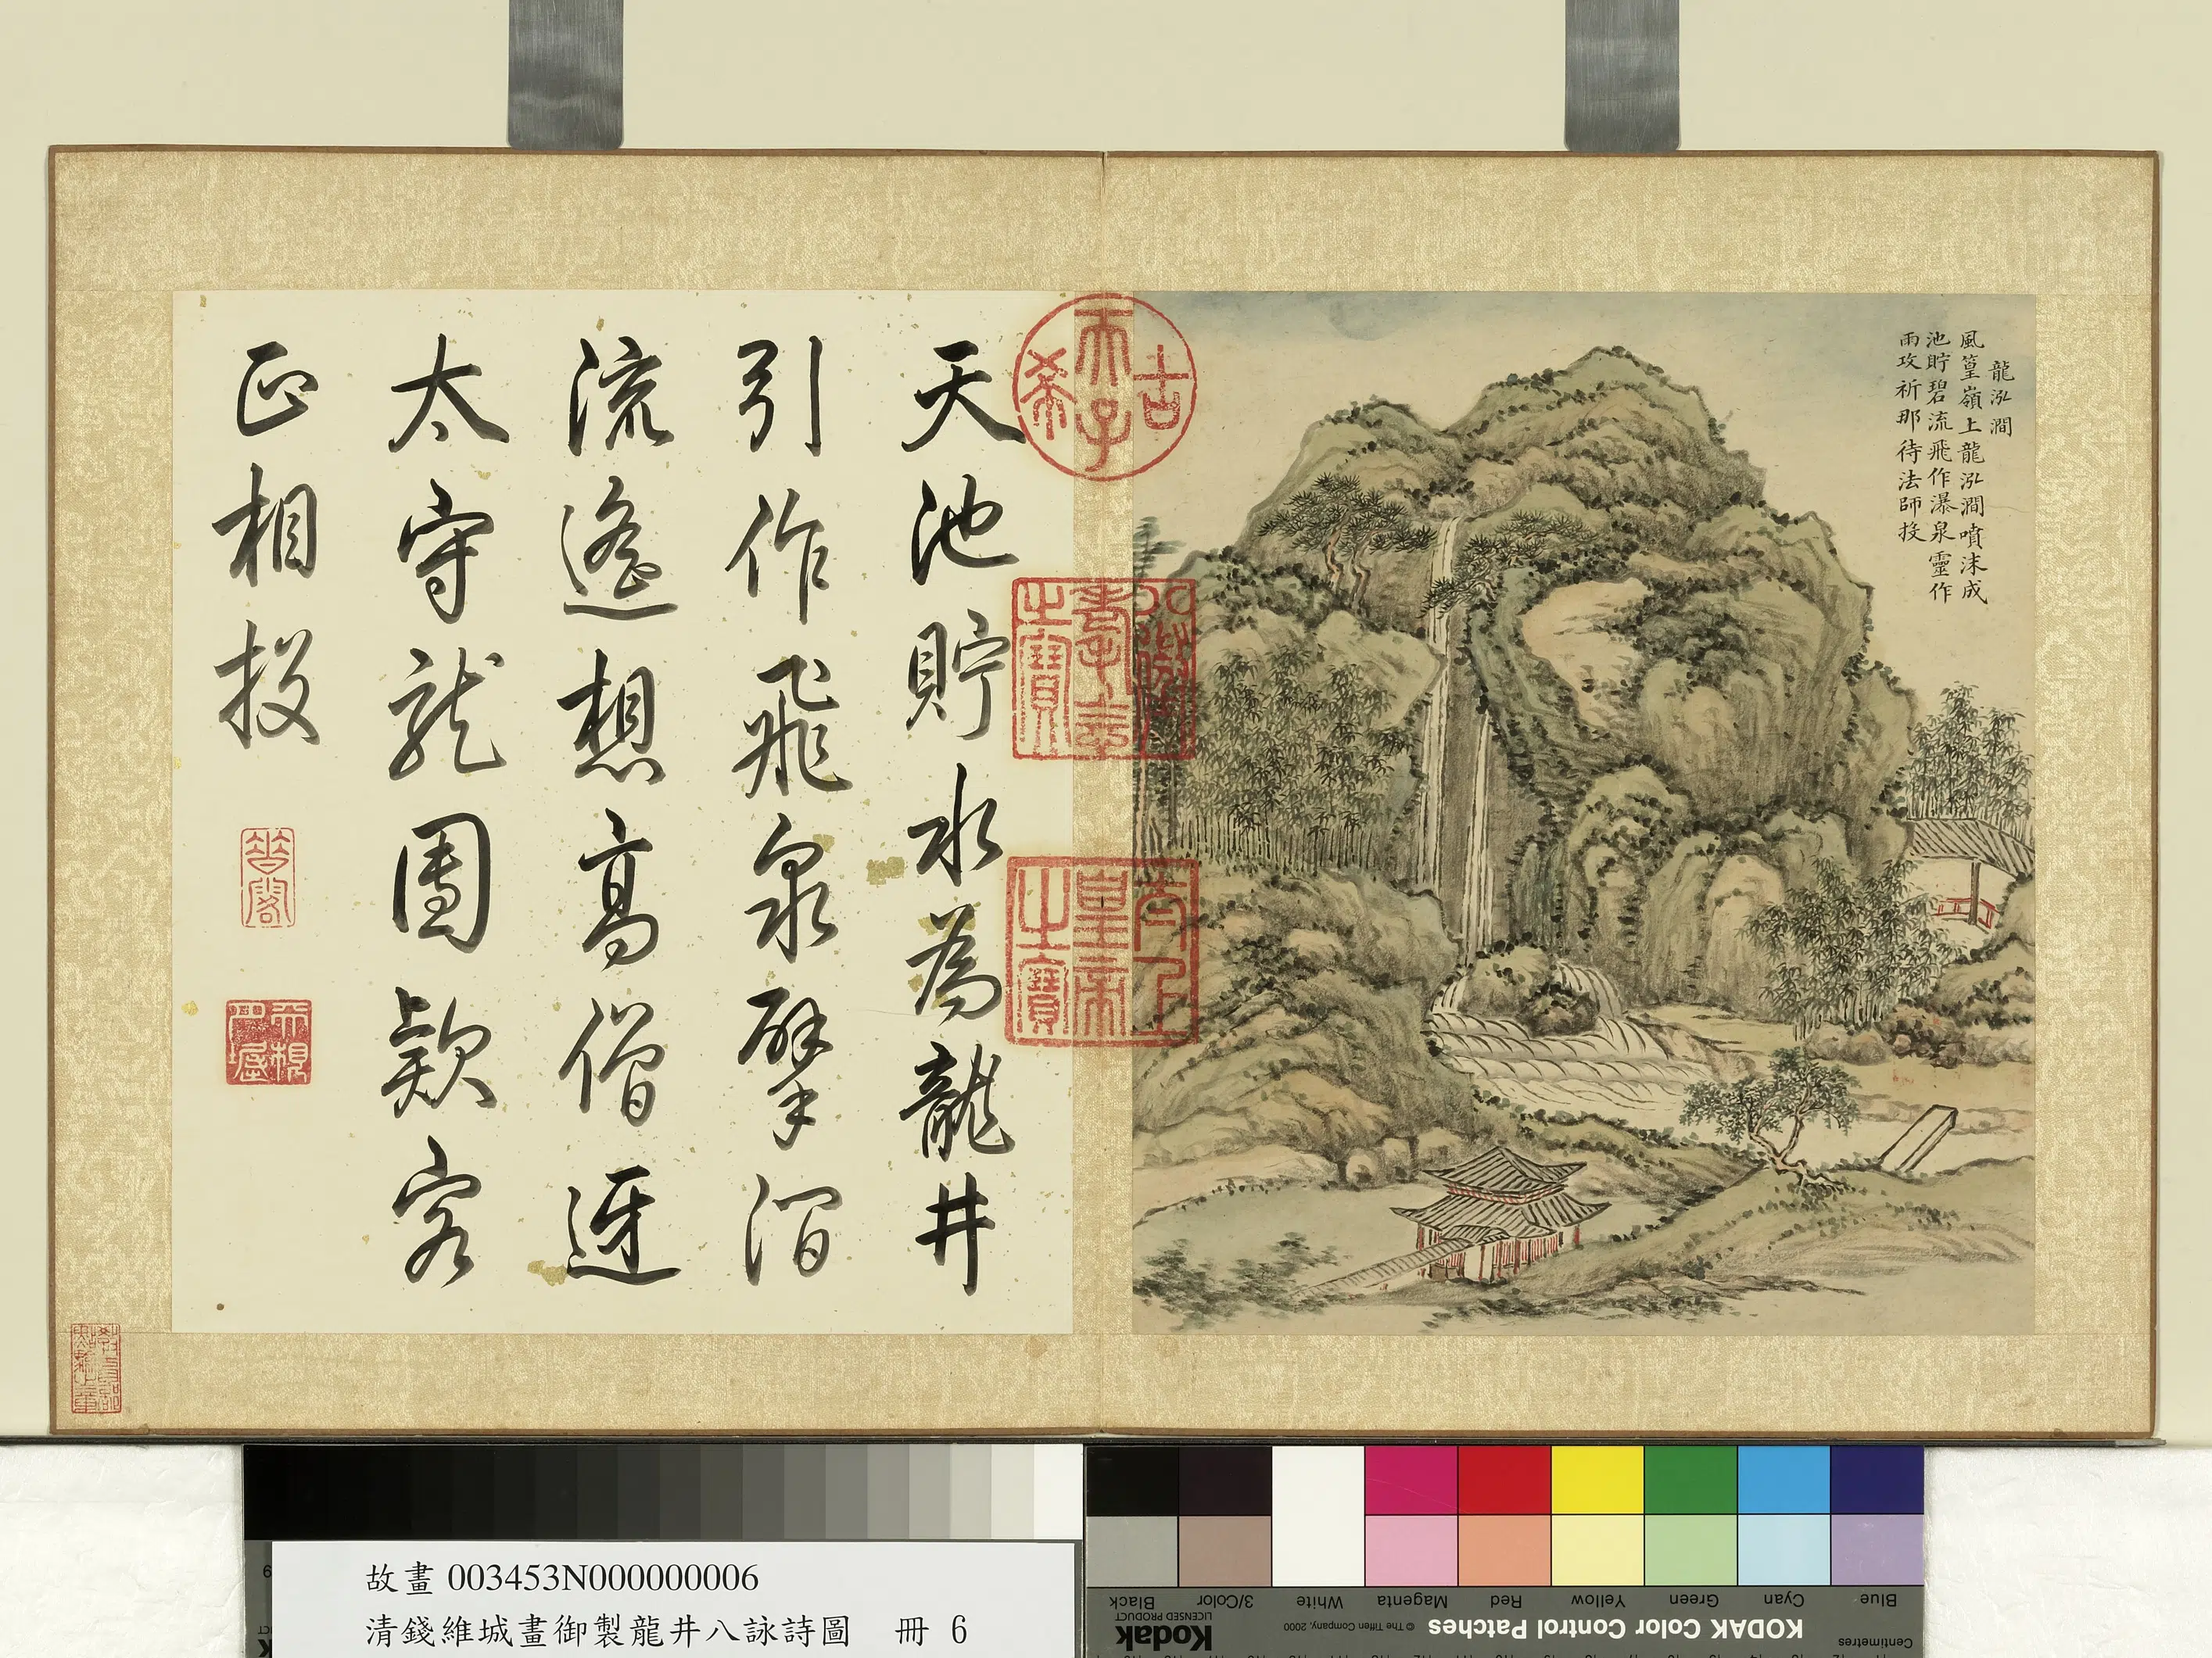 龍泓澗
風篁嶺上龍泓澗噴沫成
池貯碧流飛作瀑泉靈作
雨攻祈那待法師投
古希天子
八徵耄念之寶
太上皇帝之寶
天池貯水為龍井
引作飛泉擘澗
流遙想高僧迓
太守龍團欵客
正相投
故畫 003453N000000006
清錢維城畫御製龍井八詠詩圖 冊 6
KODAK Color Control Patches
© The Tiffen Company, 2000
Kodak
LICENSED PRODUCT
Centimetres
Blue
Cyan
Green
Yellow
Red
Magenta
White
3/Color
Black